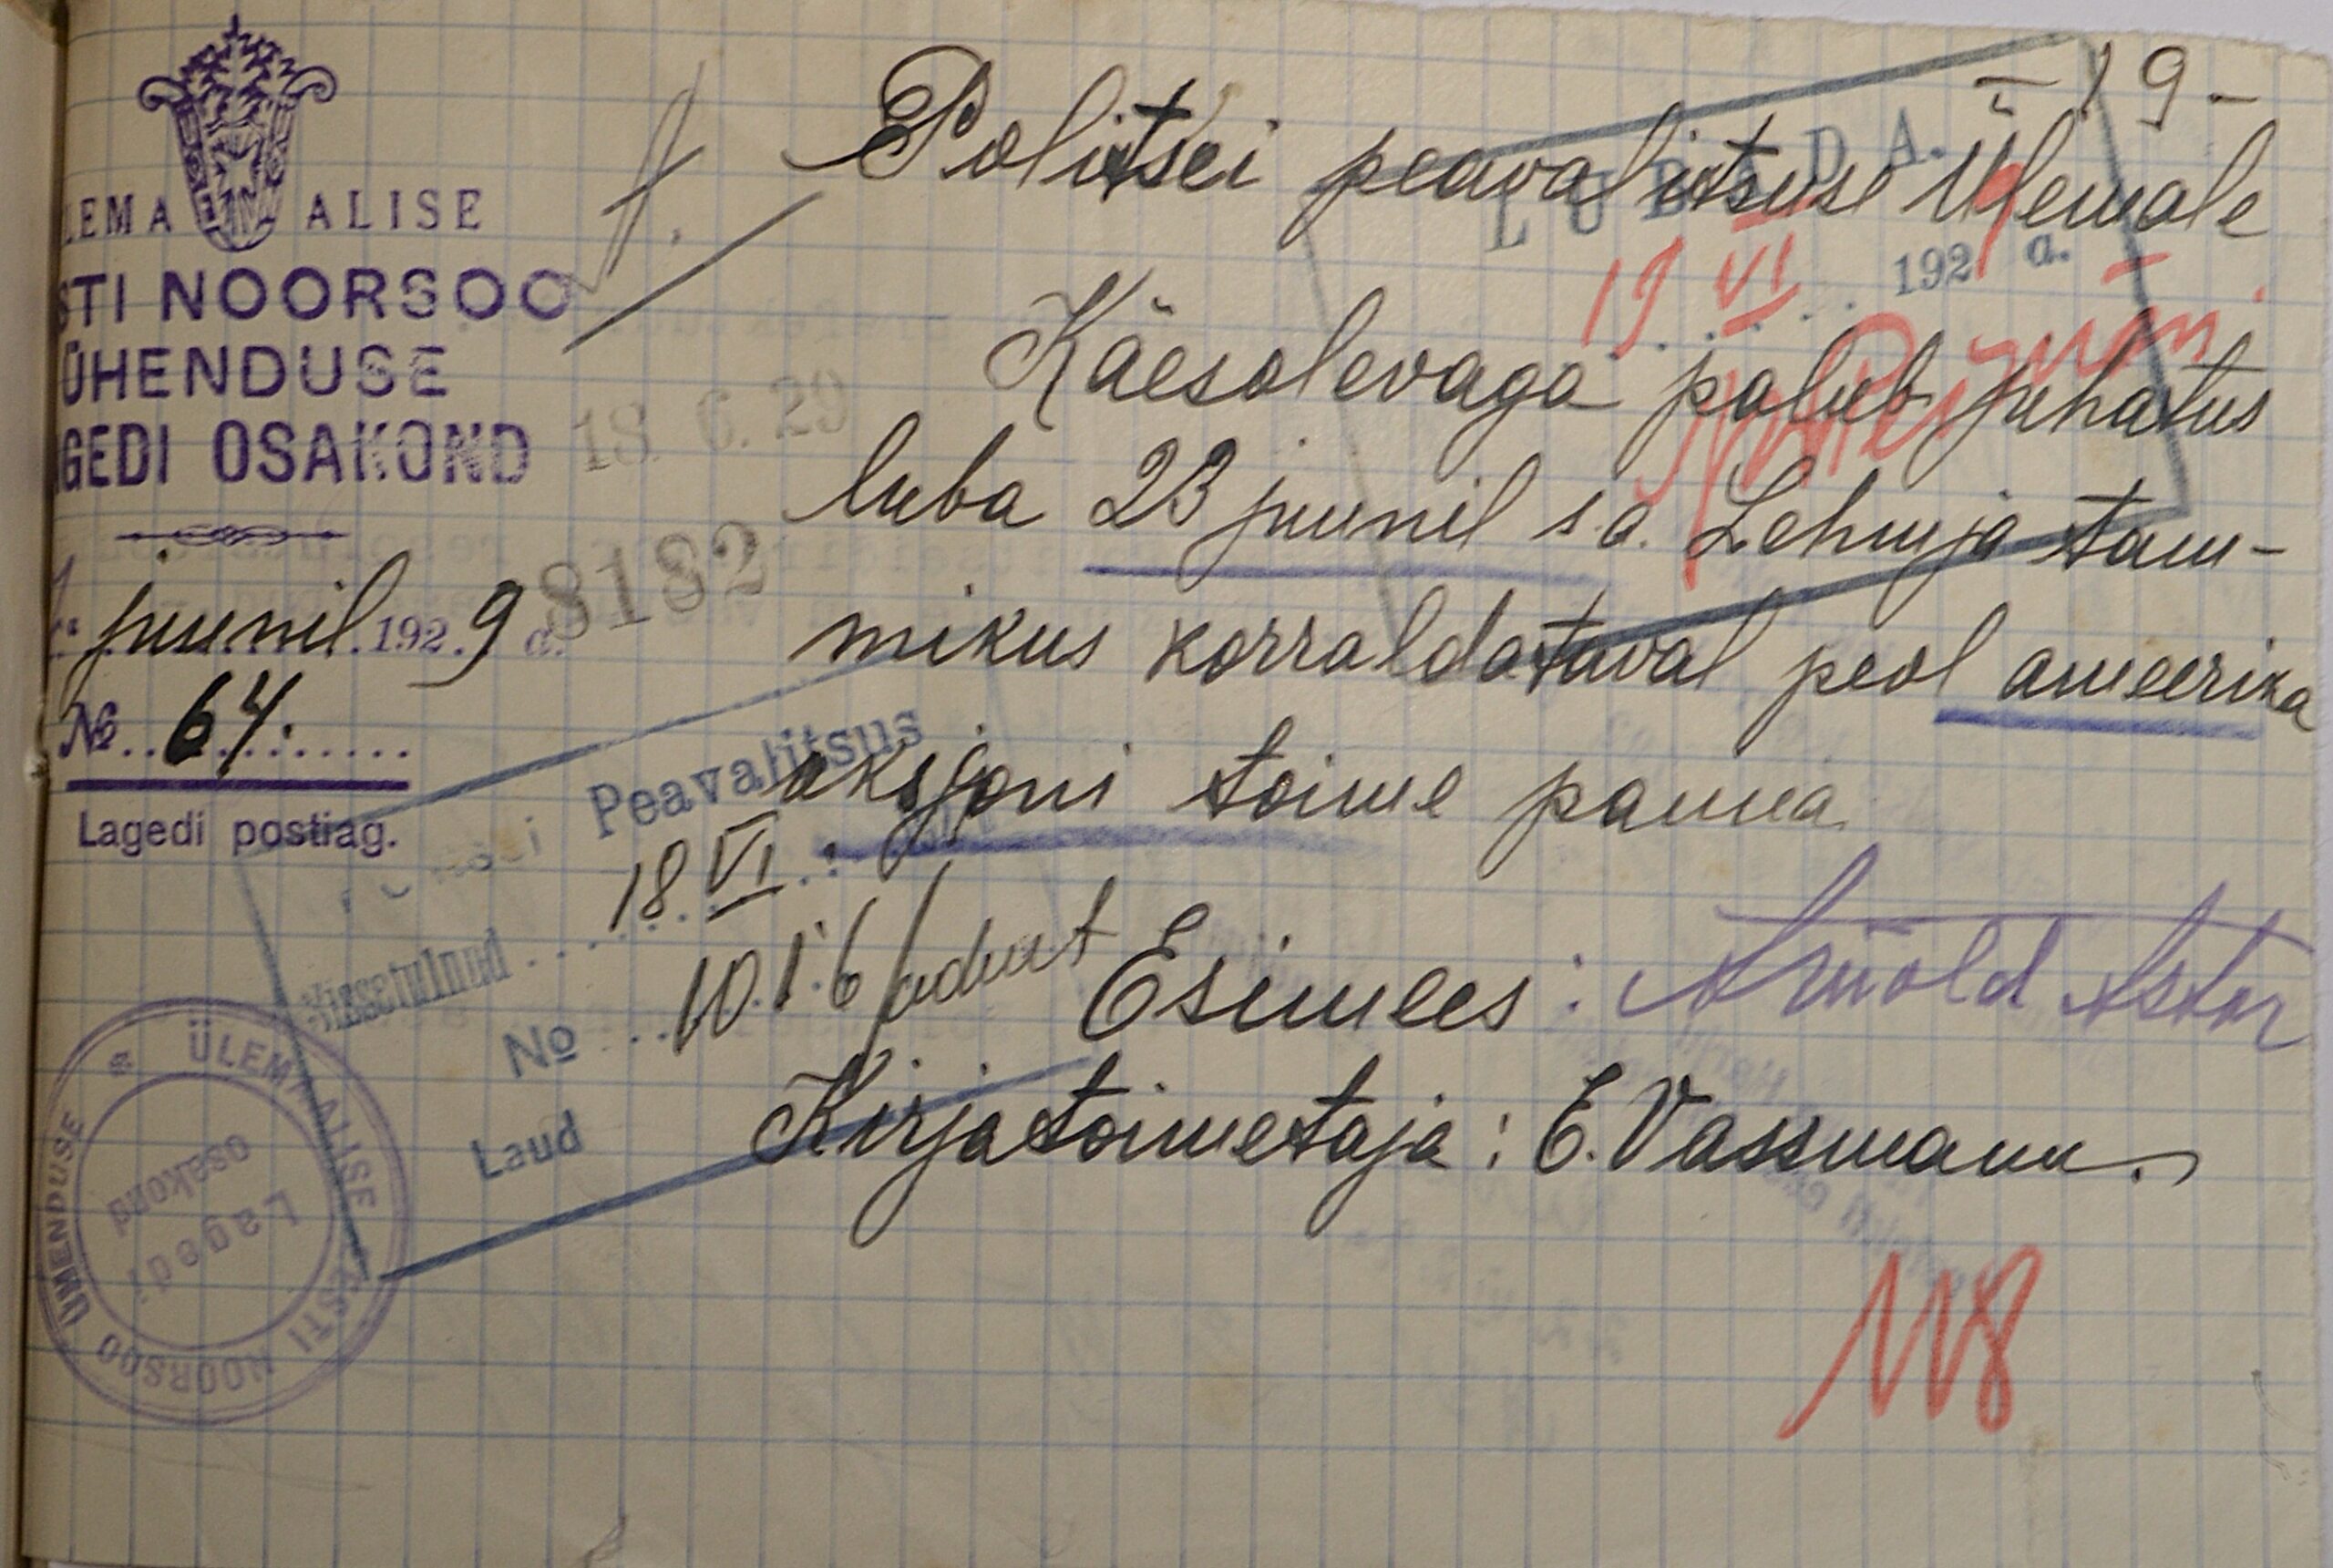 -19-
LEMAALISE
STI NOORSOO
ÜHENDUSE
GEDI OSAKOND
juunil 1929 a.
№ 64.
Lagedi postiag.
18. 6. 29
8132
Politsei peavalitsuse Ülemale
LUBADA.
19. VI 1929 a.
Käesolevaga palub juhatus
luba 23 juunil s.a. Lehmja tam-
mikus korraldataval peol ameerika
oksjoni toime panna
Politsei Peavalitsus
Sissetulnud 18 VI
No 1016/
Laud
Esimees: Arnold Astor
Kirjatoimetaja: E. Vassmann.
ÜLEMAALISE EESTI NOORSOO ÜHENDUSE
Lagedi
osakond
118